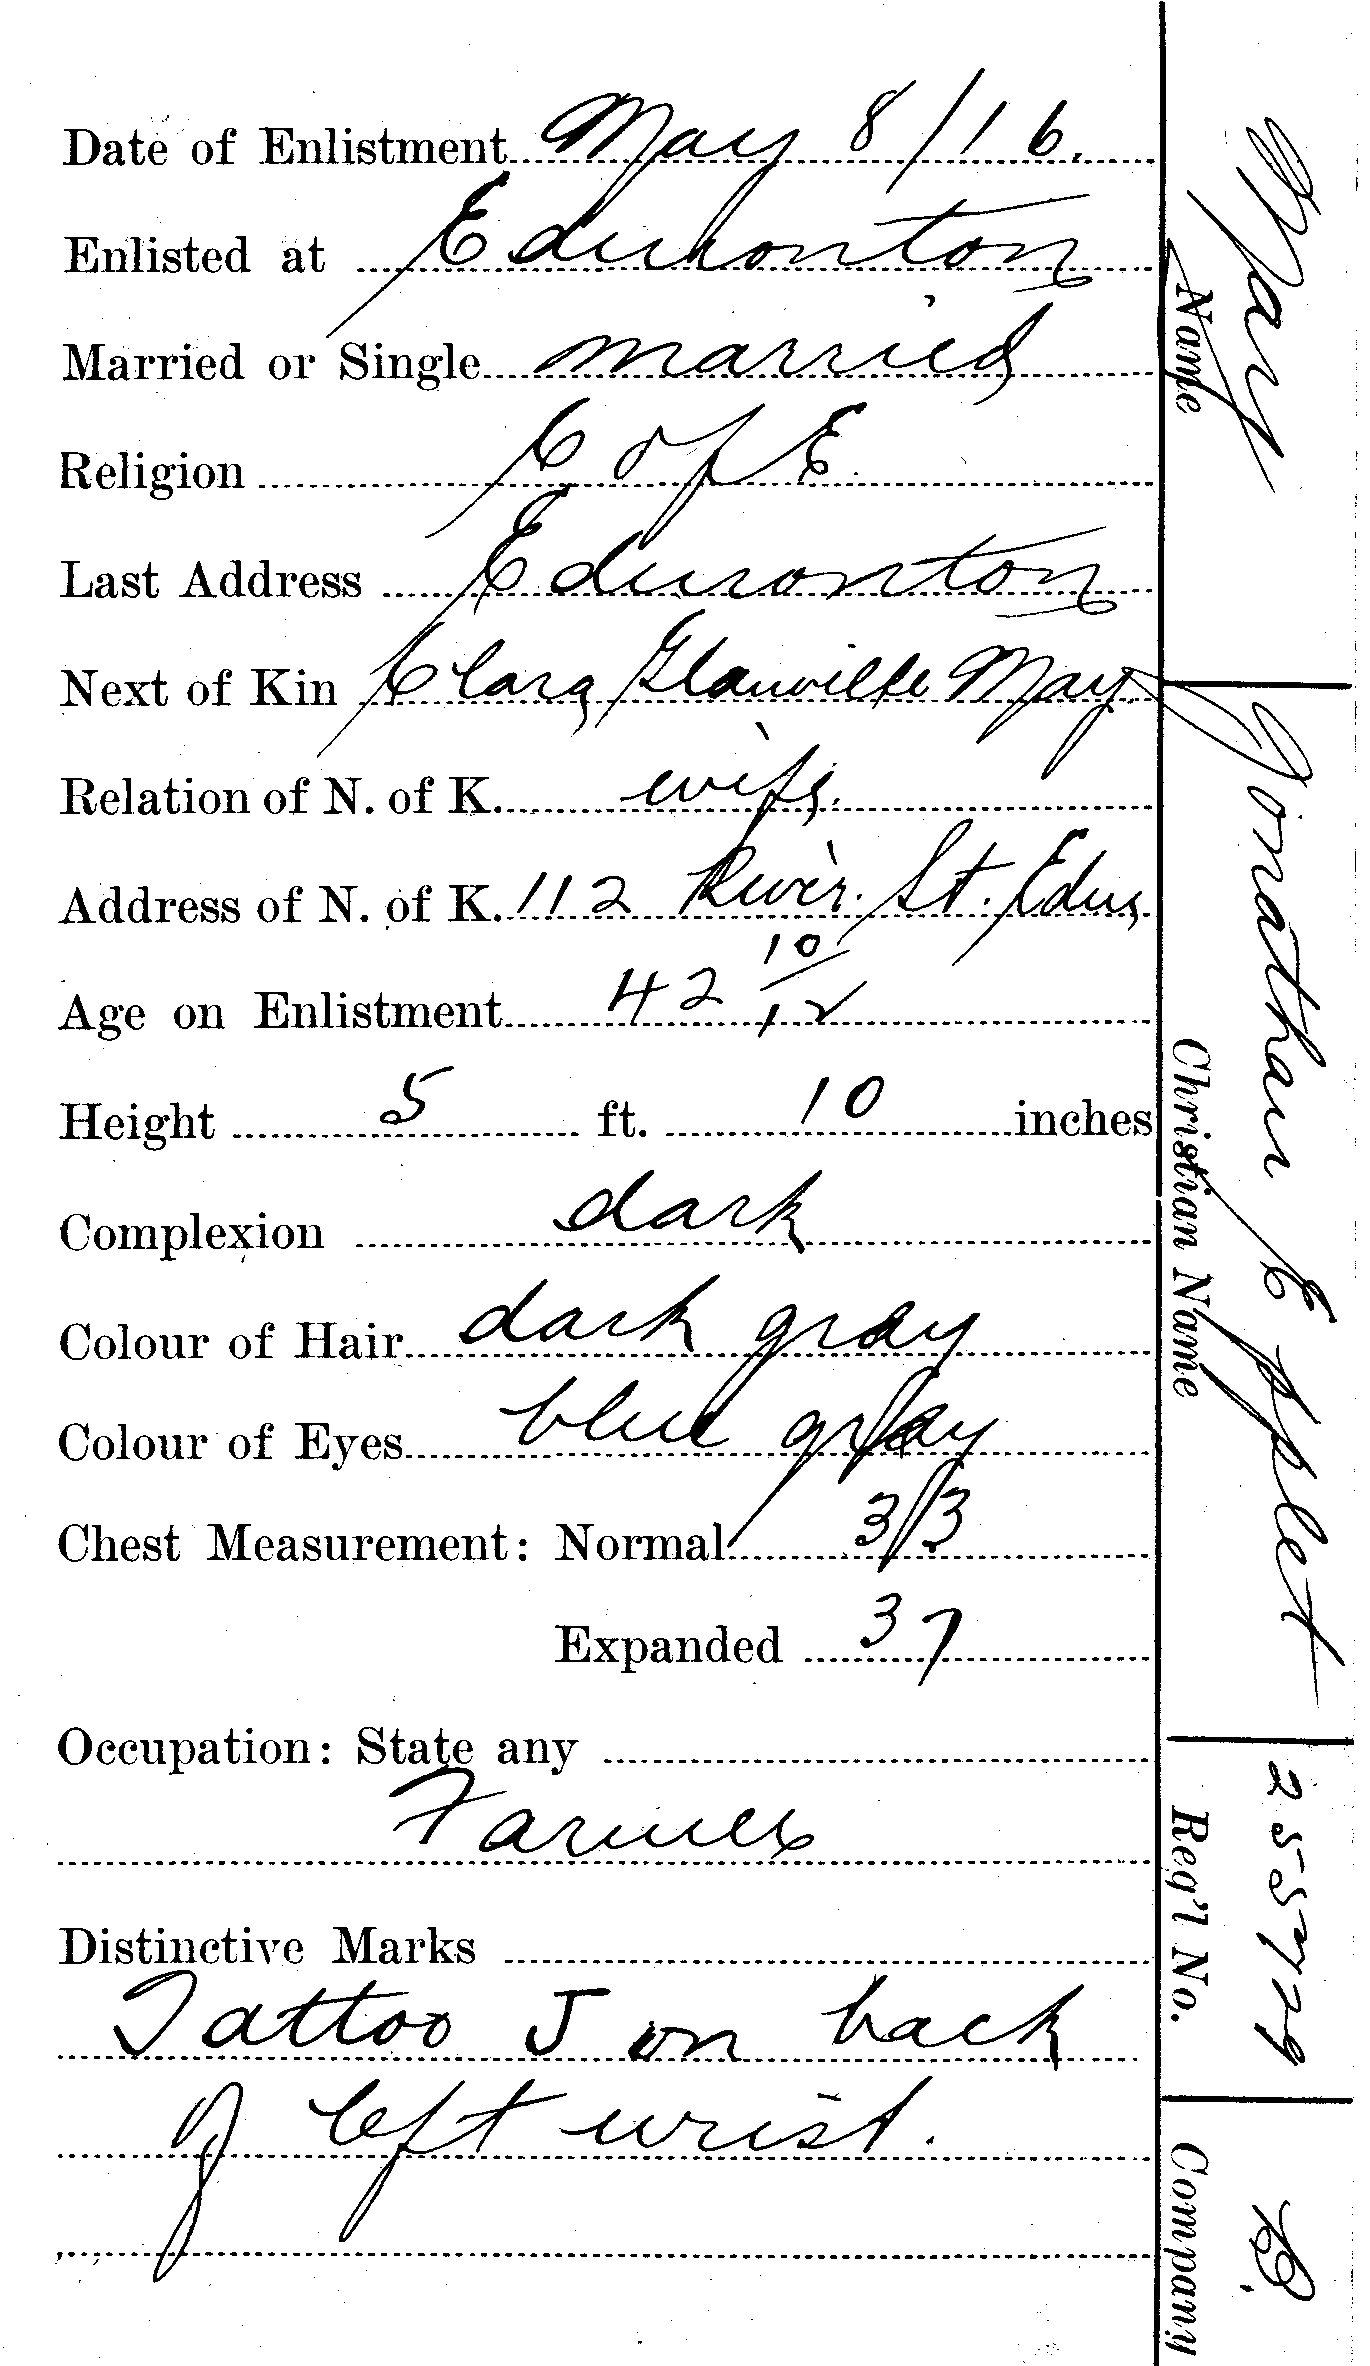 Date of Enlistment May 8/16.
Enlisted at Edmonton
Married or Single married
Religion C of E.
Last Address Edmonton
Next of Kin Clara Glanville May
Relation of N. of K. wife
Address of N. of K. 112 River St. Edm
Age on Enlistment 42 10/12
Height 5 ft. 10 inches
Complexion dark
Colour of Hair dark gray
Colour of Eyes blue gray
Chest Measurement: Normal 33
Expanded 37
Occupation: State any
Farmer
Distinctive Marks
Tattoo J on back
of left wrist.
May Jonathan Epplet 255779 B.
Name Christian Name Reg'l No. Company